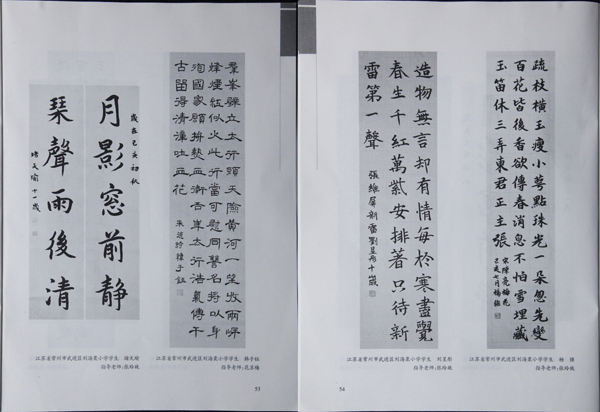 月影窓前静
歲在己亥初秋
琴聲雨後清
文瑜十一歲
羣峯壁立太行頭天險黃河一望收兩岸
烽煙紅似火此行當可慰同讎名將以身
殉國家願拚熱血衛吾華太行浩氣傳千
古留得清漳吐血花
朱德詩韓子鈺
江苏省常州市武进区刘海粟小学学生 文瑜
指导老师:张玲
江苏省常州市武进区刘海粟小学学生 韩子钰
指导老师:花苏梅
53
疏枝橫玉瘦小萼點珠光一朵忽先變
百花皆後香欲傳春消息不怕雪埋藏
玉笛休三弄東君正主張
宋陳亮梅花
己亥七月楊
造物無言却有情每於寒盡覺
春生千紅萬紫安排著只待新
雷第一聲
張維屏新雷劉昱彤十歲
江苏省常州市武进区刘海粟小学学生 刘昱彤
指导老师:张玲
江苏省常州市武进区刘海粟小学学生 杨
指导老师:张玲
54